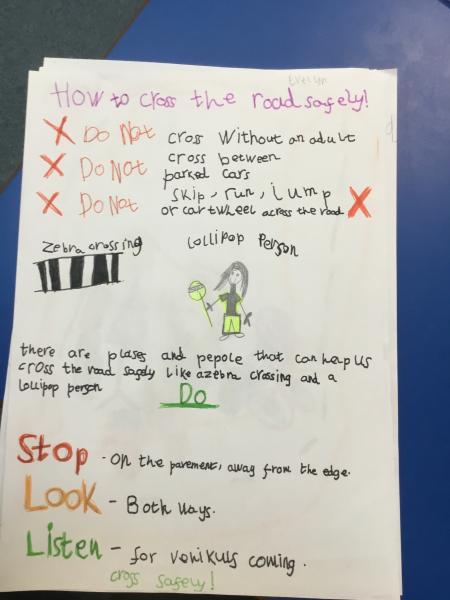 Evelyn
How to cross the road safely!
Do Not cross without an adult
Do Not cross between
parked cars
Do Not skip, run, jump
or cartwheel across the road
Zebra crossing
Lollipop Person
there are plases and pepole that can help us
cross the road safely like azebra crossing and a
lollipop person
Do
Stop - on the pavement, away from the edge.
Look - Both ways.
Listen - for vehikuls coming.
cross safely!